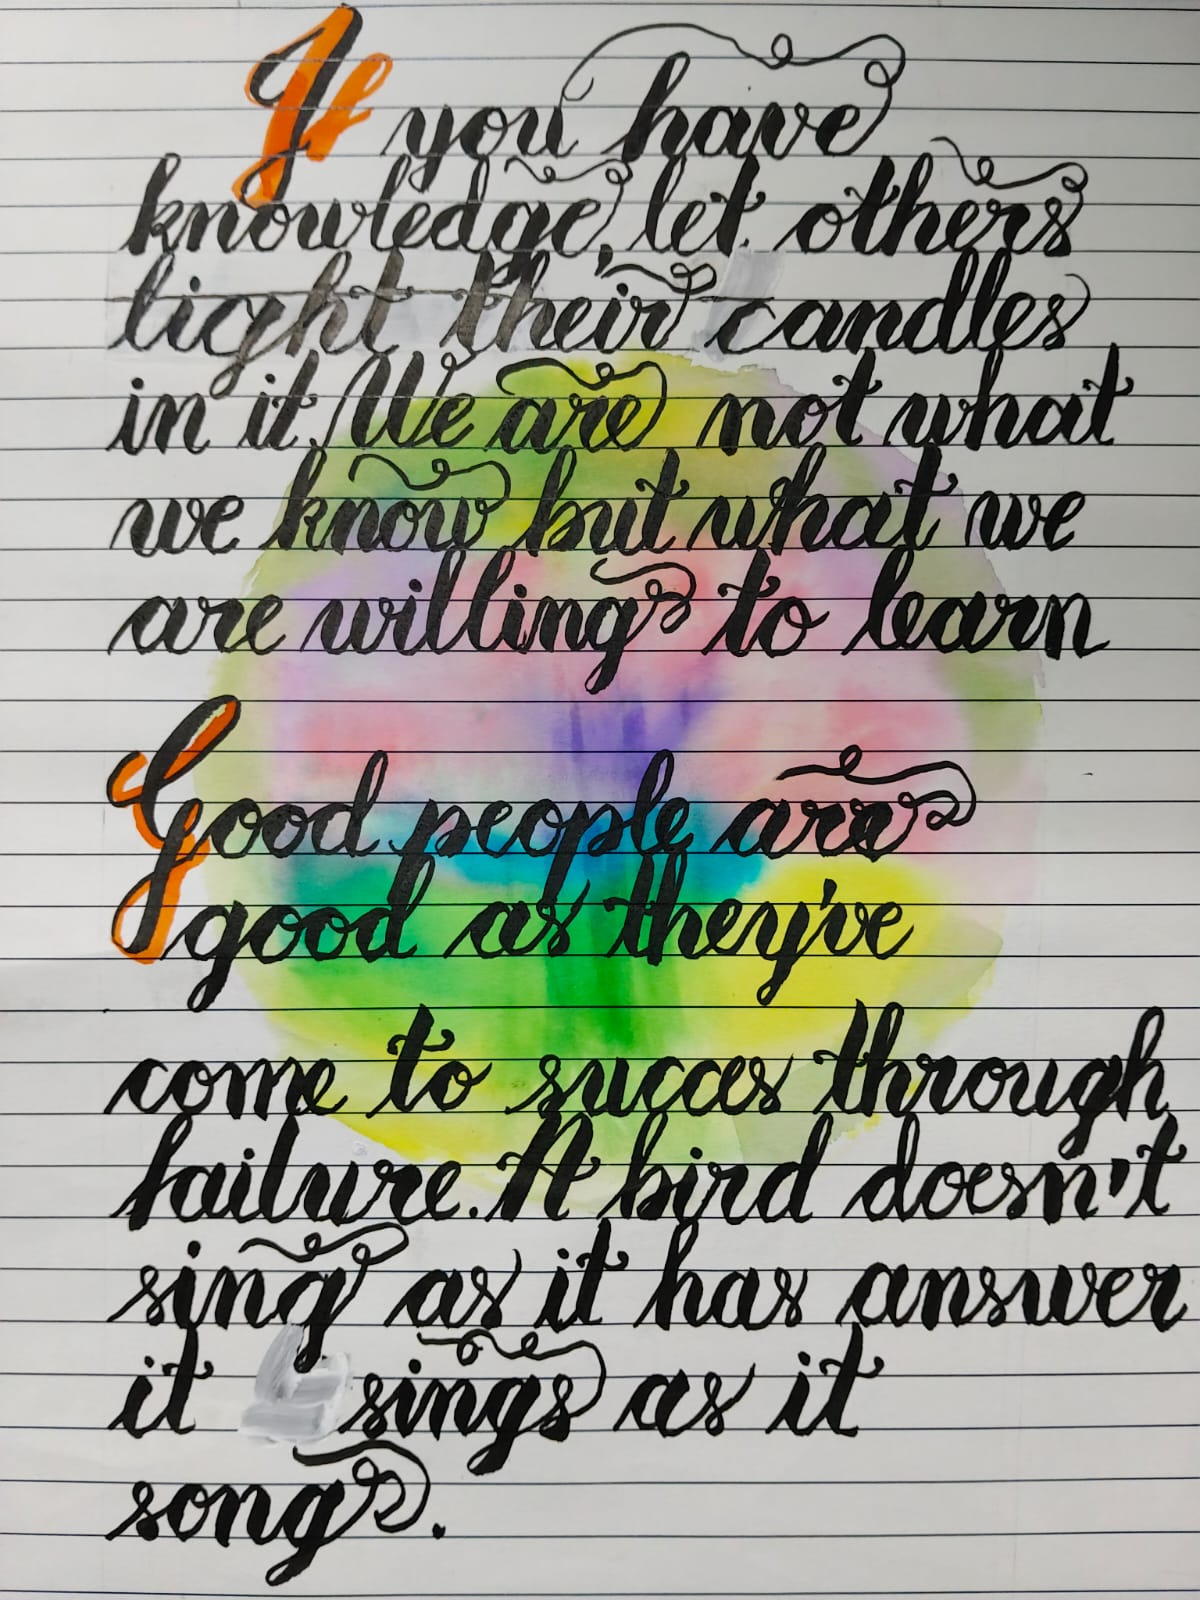 If you have
knowledge, let others
light their candles
in it. We are not what
we know but what we
are willing to learn
Good people are
good as they've
come to succes through
failure. A bird doesn't
sing as it has answer
it sings as it
song.